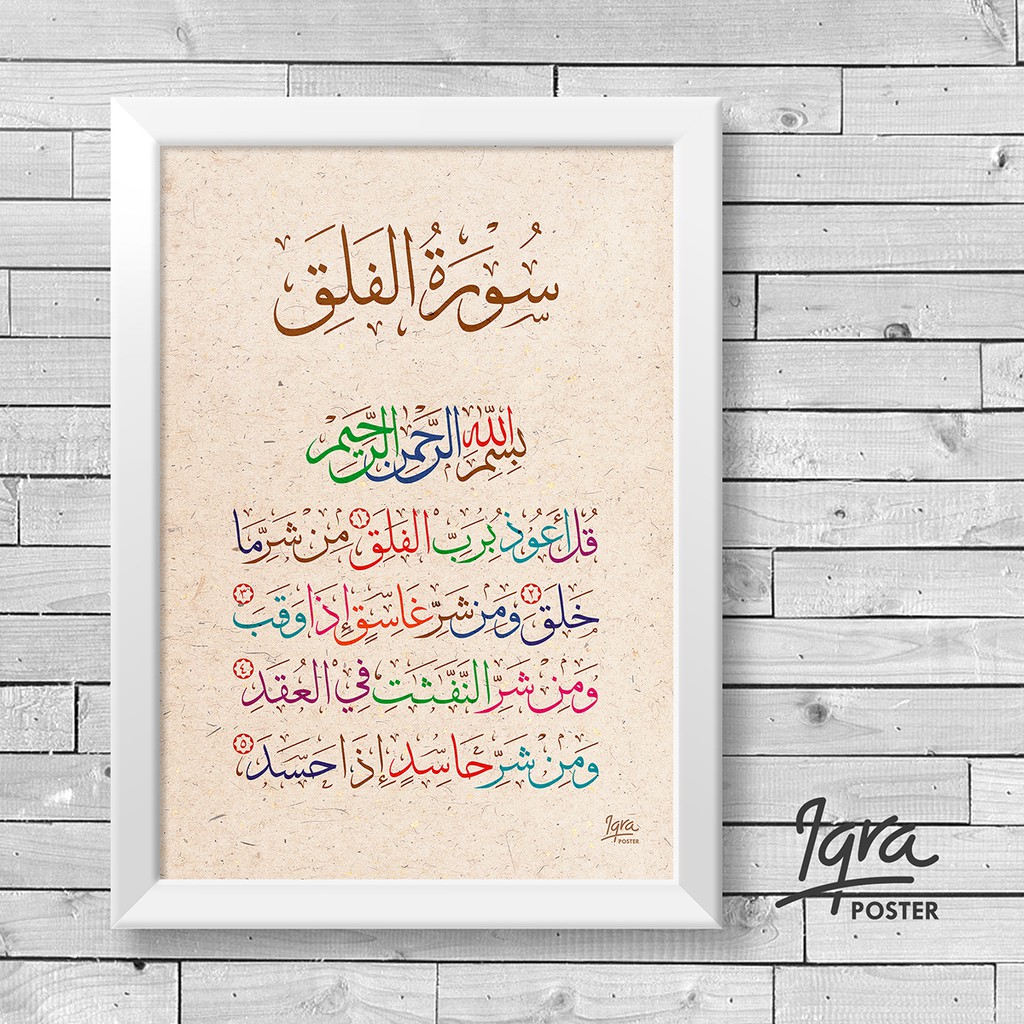 سُورَةُ الفَلَقِ
بِسْمِ اللَّهِ الرَّحْمَنِ الرَّحِيمِ
قُلْ أَعُوذُ بِرَبِّ الفَلَقِ ١ مِن شَرِّ مَا
خَلَقَ ٢ وَمِن شَرِّ غَاسِقٍ إِذَا وَقَبَ ٣
وَمِنْ شَرِّ النَّفَّثَتِ فِي الْعُقَدِ ٤
وَمِنْ شَرِّ حَاسِدٍ إِذَا حَسَدَ ٥
Iqra
POSTER
Iqra
POSTER